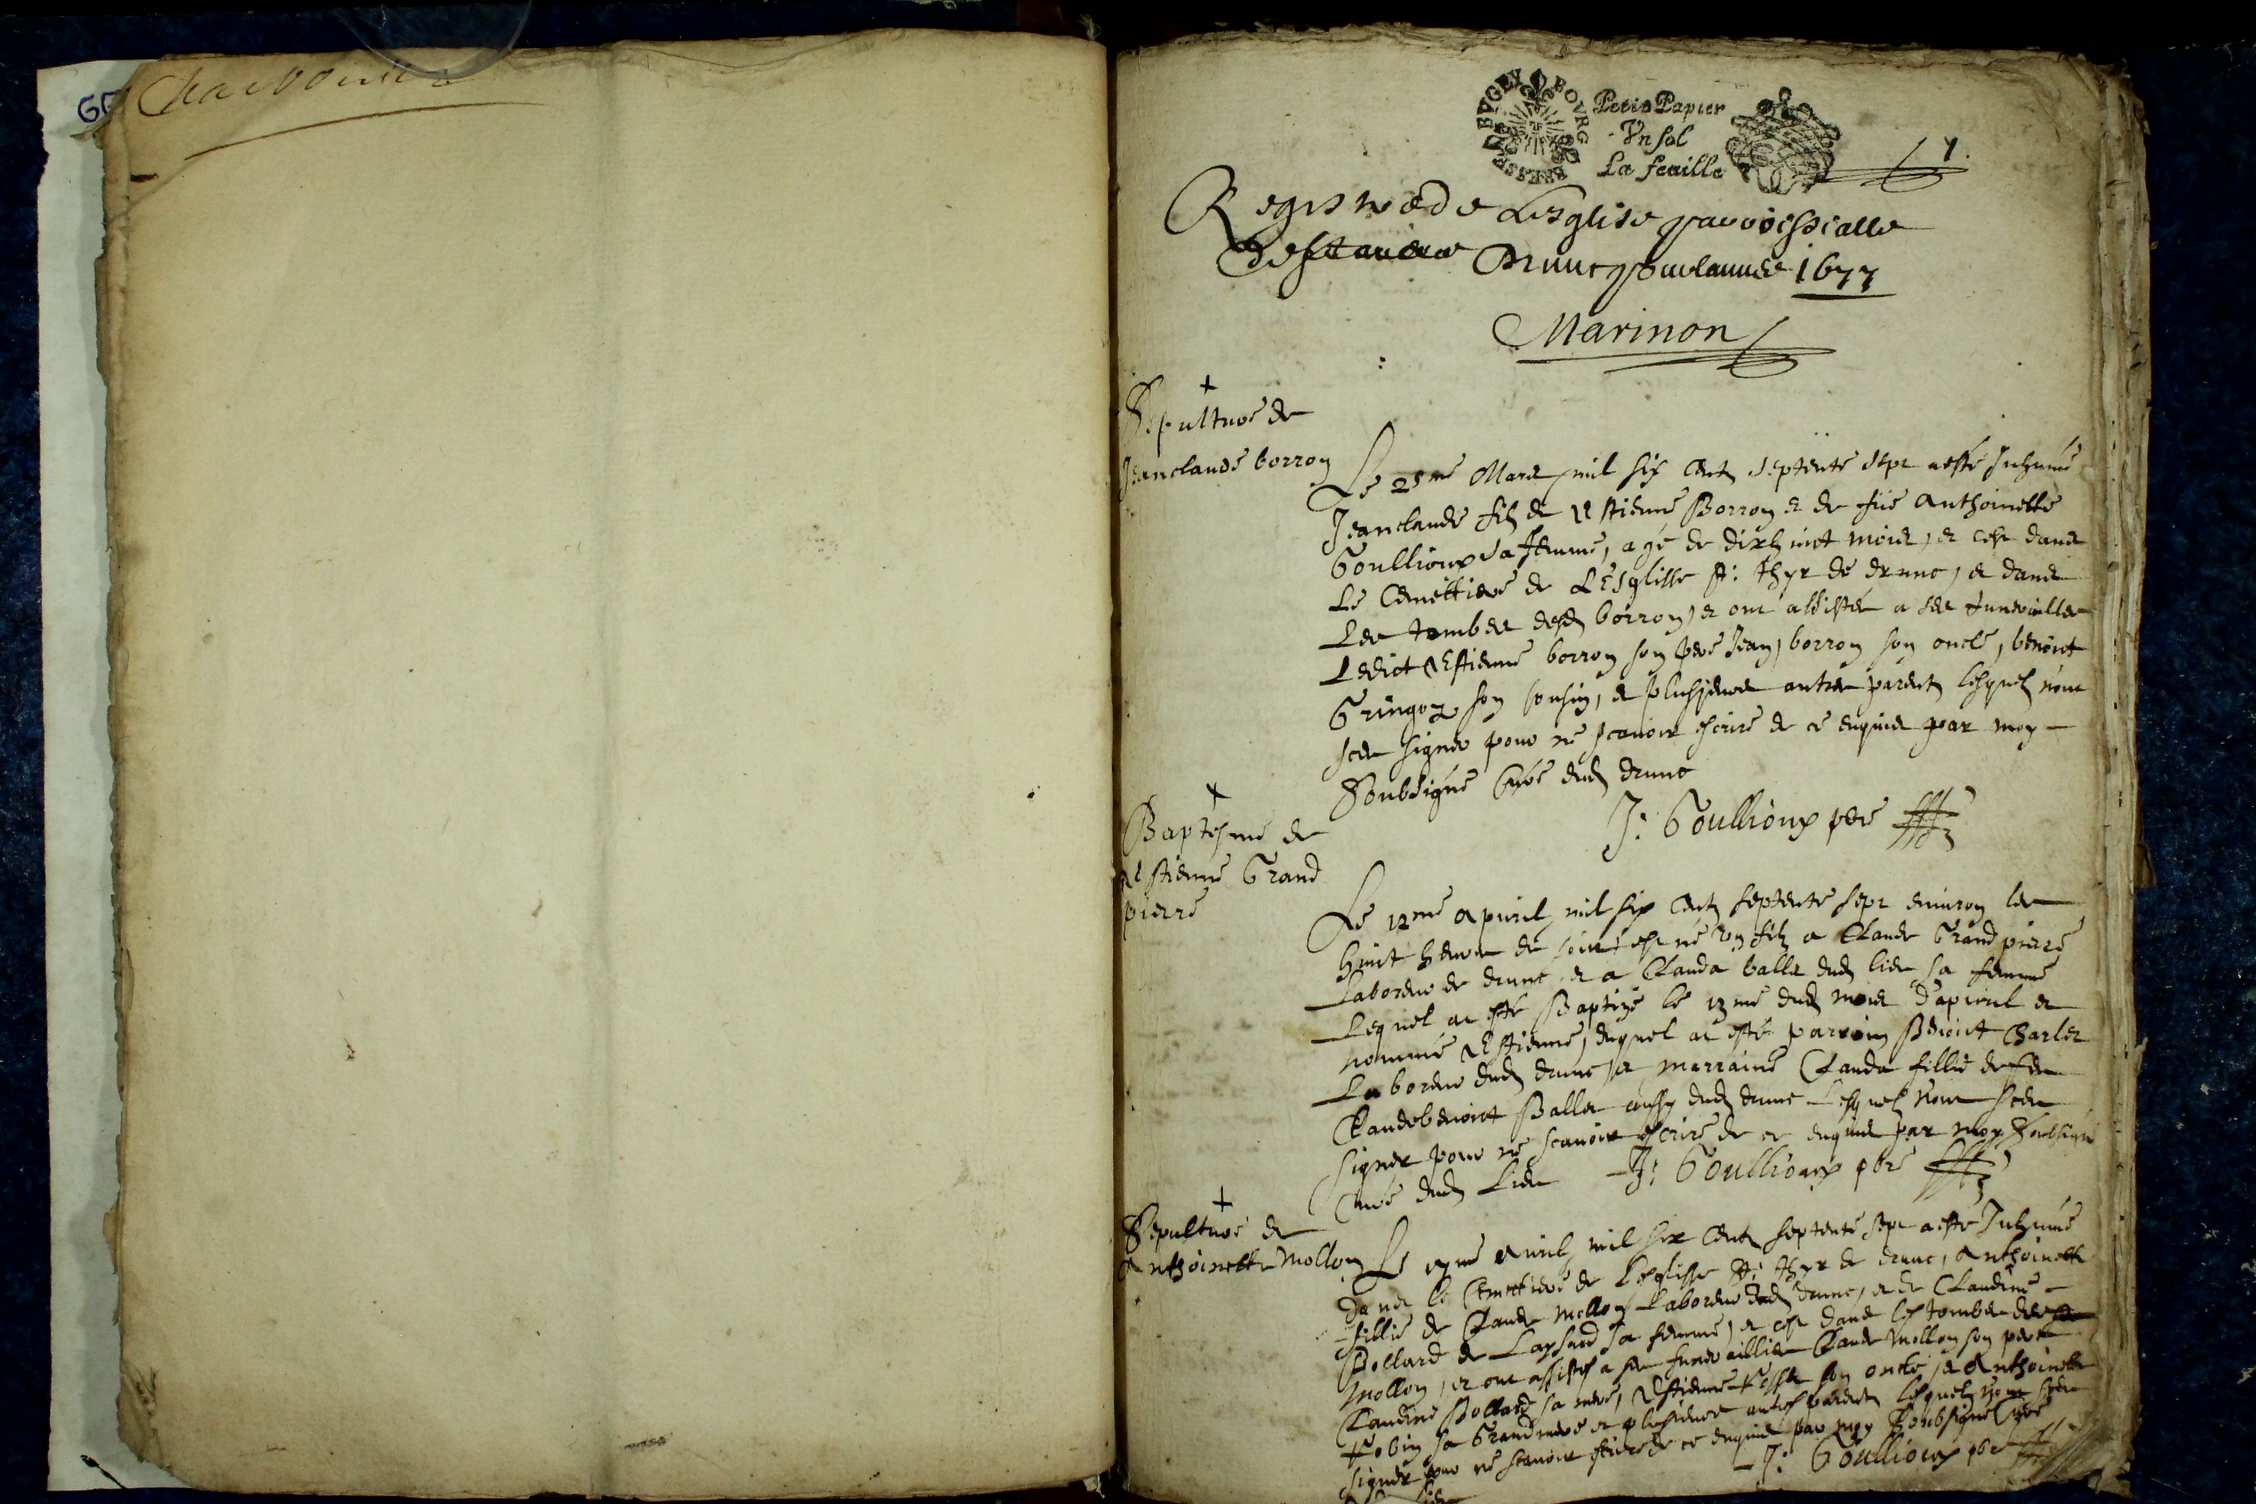 GG
BRESSE BVGEY BOVRG
Petit Papier
Vn sol
La feuille
1
Registre de Lesglise parroissialle
de Druuc pour lannee 1677
Marinon
Sepulture de
Jeanclaude borron
Le 25me Mars mil six cent septente sept a esté Inhumé
Jeanclaude filz de Estienne Borron et de fue Anthoinette
Goullioux sa femme, agé de dixhuict mois, et cest dans
Le Cemettiere de L'Esglisse St: Thyr de druuc, et dans
Les tombes desd borron, et ont assistés a ses funerailles
Ledict Estienne borron son pere Jean borron son oncle, benoict
Gringoz son cousin, et plusieurs autres parents lesquels nont
sceu signer pour ne scavoir escrire de ce enquis par moy
Soubsigné Curé dud druuc
J: Goullioux pbre
Baptesme de
Estienne Grand
pierre
Le 12me apuril mil six cent septente sept environ les
huict heures de soir est né un filz a Claude Grand pierre
Laboreur de druuc et a Clauda balle dud lieu sa femme
Lequel at esté Baptizé le 13me dud mois d'apuril et
nommé Estienne, duquel at esté parrain Benoict Charles
Laboreur dud druuc, et marraine Clauda fillie de feu
Claudebenoict Balle aussy dud druuc Lesquels nont sceu
signer pour ne scavoir escrire de ce enquis par moy Soubsigné
Curé dud Lieu J: Goullioux pbre
Sepulture de
Anthoinette Mollon
Le me auril mil six cent septente sept a esté Inhumé
dans le Cemettiere de Lesglisse St: Thyr de druuc, Anthoinette
fillie de Claude Mollon Laboreur dud druuc, et de Claudine
Bollard de sa femme, et cest dans les tombes des
Mollon, et ont assistés a ses funerailles Claude Mollon son pere
Claudine Bollard sa mere, Estienne son oncle, et Anthoinette
Robin sa Grandmere et plusieurs autres parents lesquels nont sceu
signer pour ne scavoir escrire de ce enquis par moy Soubsigné Curé
J: Goullioux pbre